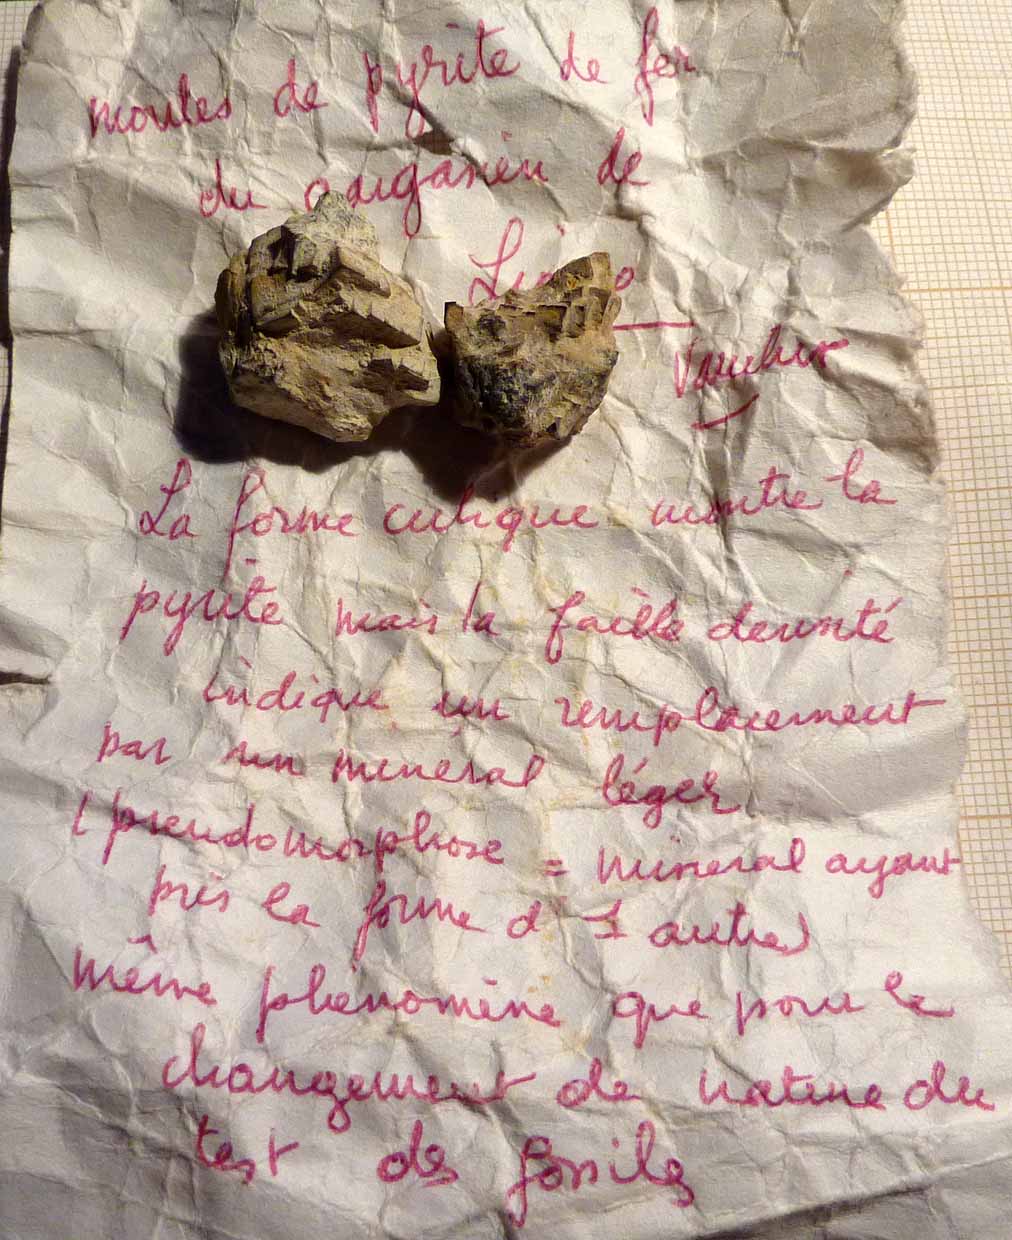 moules de pyrite de fer
du gargasien de
La forme cubique montre la
pyrite mais la faible densité
indique un remplacement
par un minéral léger
(pseudomorphose = minéral ayant
pris la forme d'1 autre)
même phénomène que pour le
changement de nature du
test des fossiles